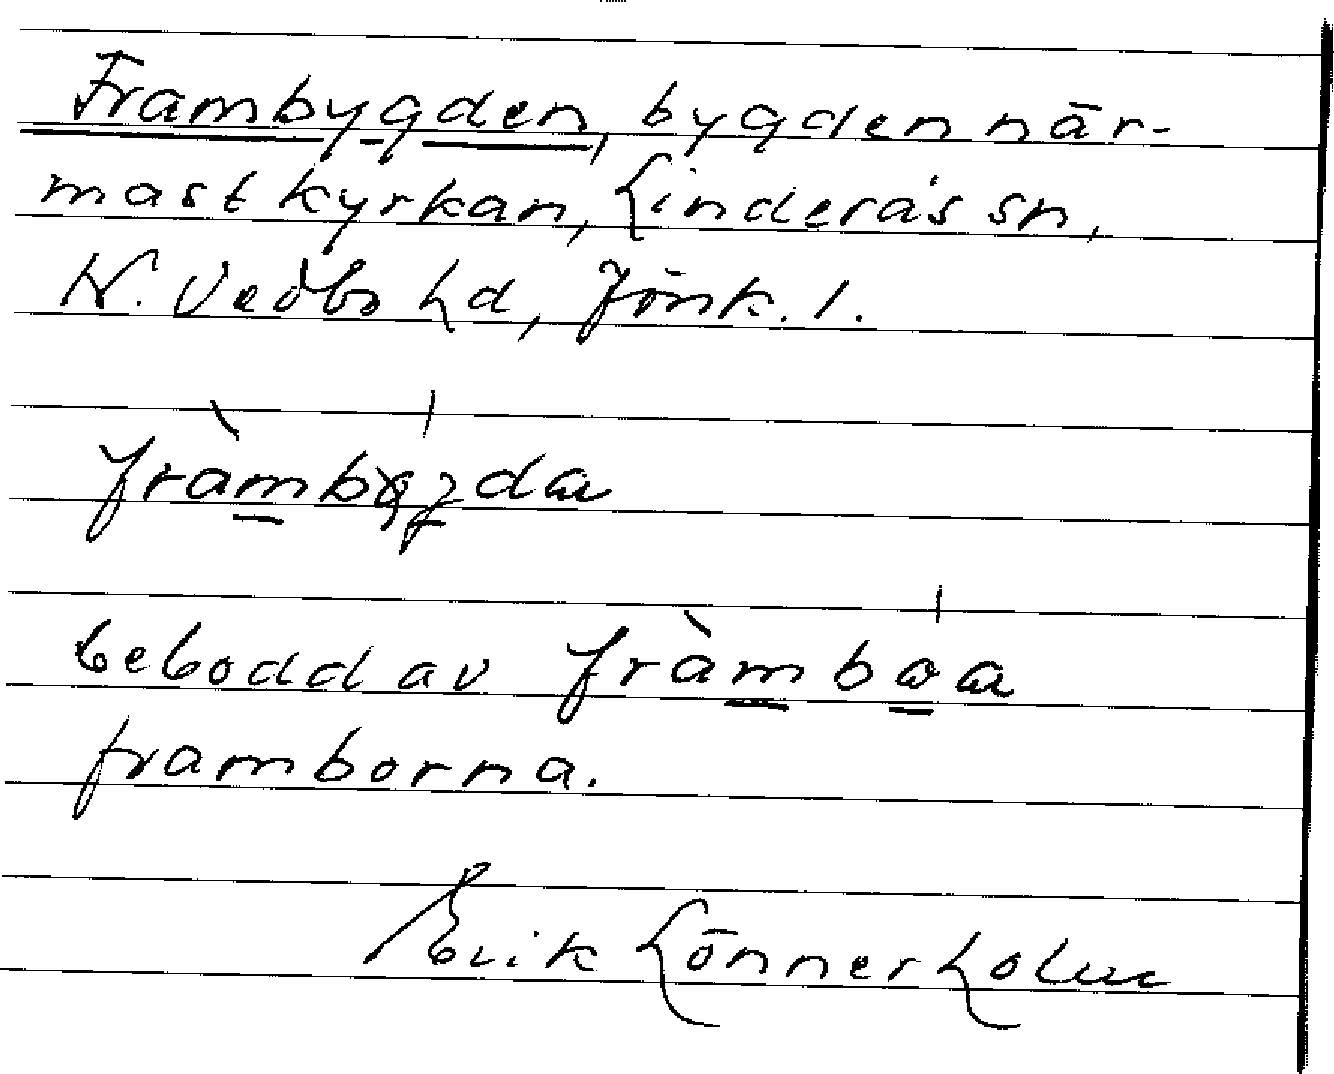 Frambygden, bygden när-
mast kyrkan, Linderås sn,
N. Vedbo hd, Jönk. l.
bebodd av
framborna.
Erik Lönnerholm